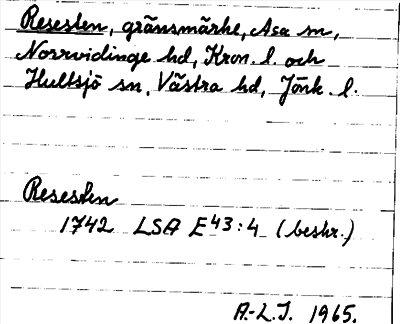 Resesten, gränsmärke, Asa sn,
Norrvidinge hd, Kron. l. och
Hultsjö sn, Västra hd, Jönk. l.
Resesten
1742 LSA E43:4 (beskr.)
A.-L.J. 1965.